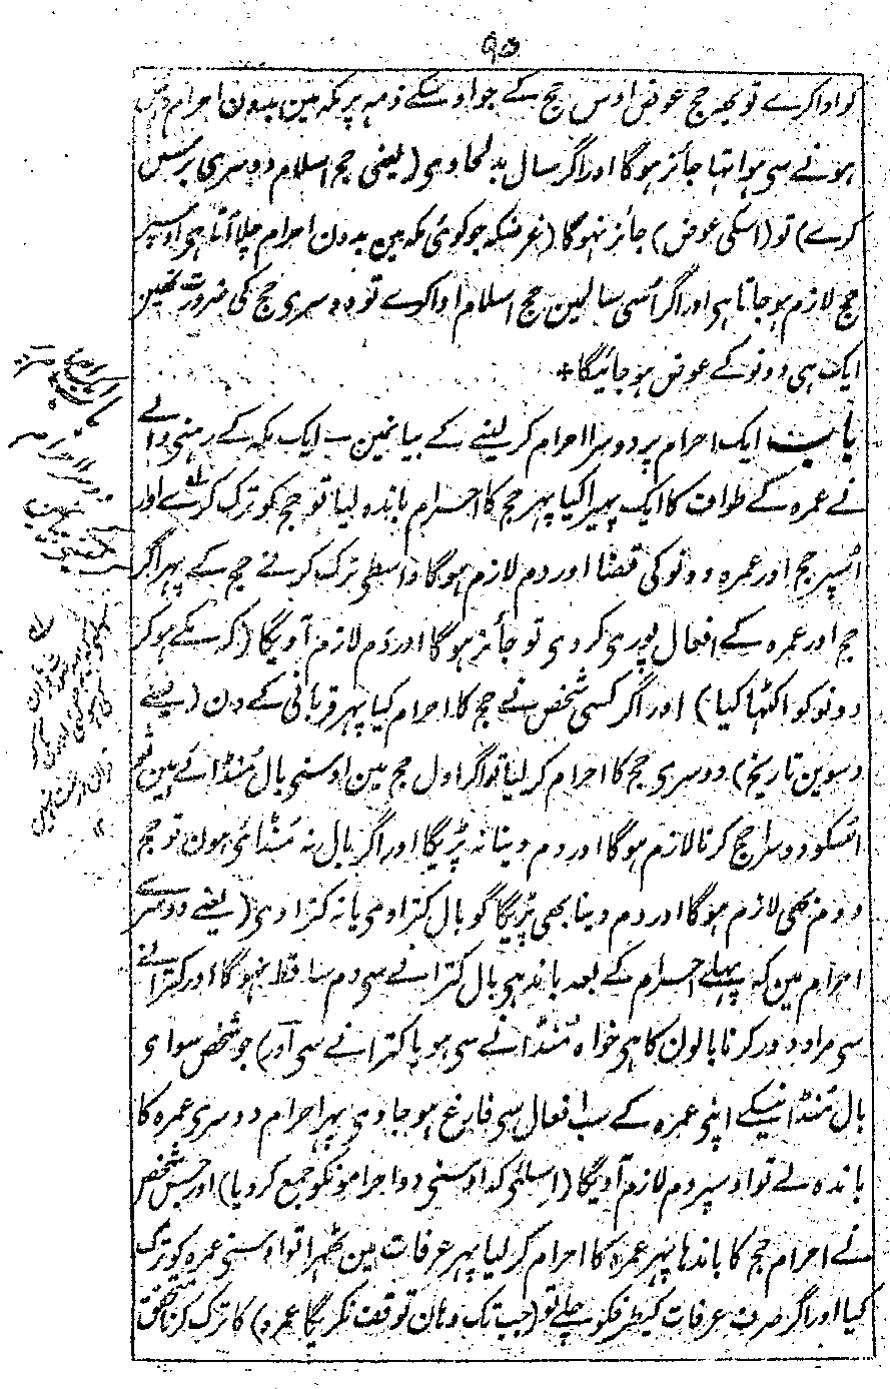 ۹۵
کو ادا کرے تو پھر حج عوض اوس حج کے جو اوسکے ذمہ پر مکہ مین بدون احرام داخل
ہونے سی ہوا تہا جائز ہوگا اور اگر سال بدلجاوی (یعنی حج اسلام دوسری برس
کرے) تو (اسکی عوض) جائز نہوگا (غرضکہ جو کوئی مکہ مین بدون احرام چلا آتا ہی اوسپر
حج لازم ہوجاتا ہی اور اگر اُسی سالمین حج اسلام ادا کرے تو دوسری حج کی ضرورت نہین
ایک ہی دونو کے عوض ہوجائیگا +
باب ایک احرام پر دوسرا احرام کر لینے کے بیانمین ـ ایک مکہ کے رہنی والے
نے عمرہ کے طواف کا ایک پہیرا کیا پہر حج کا احرام باندہ لیا تو حج کو ترک کرے اور
اُسپر حج اور عمرہ دونو کی قضا اور دم لازم ہوگا واسطی ترک کرنے حج کے پہر اگر
حج اور عمرہ کے افعال پوری کردی تو جائز ہوگا اور دَم لازم آویگا (کہ مکے ہوکر
دونو کو اکٹہا کیا) اور اگر کسی شخص نے حج کا احرام کیا پہر قربانی کے دن (یعنے
دسوین تاریخ) دوسری حج کا احرام کر لیا تو اگر اول حج مین اوسنی بال مُنڈائے ہین تو
اُسکو دوسرا حج کرنا لازم ہوگا اور دم دینا نہ پڑیگا اور اگر بال نہ مُنڈائی ہون تو حج
دوم بھی لازم ہوگا اور دم دینا بھی پڑیگا گو بال کتراوی یا نہ کتراوی (یعنے دوسرے
احرام مین کہ پہلے احرام کے بعد باندہی بال کترانے سی دم ساقط نہوگا اور کترانے
سی مراد دور کرنا بالون کا ہی خواہ مُنڈانے سی ہو یا کترانے سی اور) جو شخص سوای
بال مُنڈانیکے اپنی عمرہ کے سب افعال سی فارغ ہوجاوی پہر احرام دوسری عمرہ کا
باندہ لے تو اوسپر دم لازم آویگا (اسلئی کہ اوسنی دو احرامونکو جمع کردیا) اور جس شخص
نے احرام حج کا باندہا پہر عمرہ کا احرام کر لیا پہر عرفات مین ٹھہرا تو اوسنی عمرہ کو ترک
کیا اور اگر صرف عرفات کیطرفکو چلے تو (جب تک وہان توقف نکریگا عمرہ) کا ترک کرنا متحقق